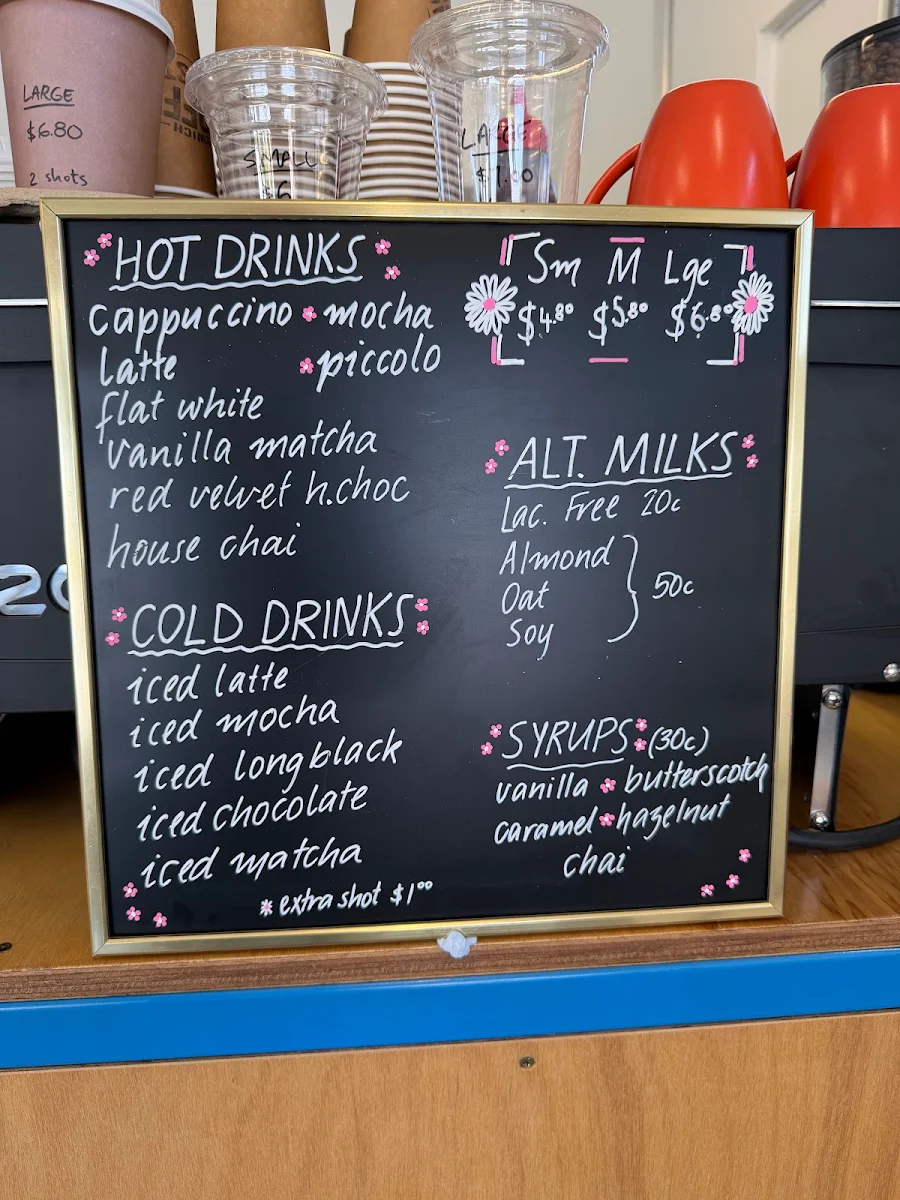 LARGE
$6.80
2 shots
SMALL
$6
LARGE
$7.00
HOT DRINKS
cappuccino mocha
latte piccolo
flat white
vanilla matcha
red velvet h.choc
house chai
COLD DRINKS
iced latte
iced mocha
iced longblack
iced chocolate
iced matcha
* extra shot $1.00
Sm M Lge
$4.80 $5.80 $6.80
ALT. MILKS
Lac. Free 20c
Almond
Oat
Soy
50c
SYRUPS (30c)
vanilla butterscotch
caramel hazelnut
chai